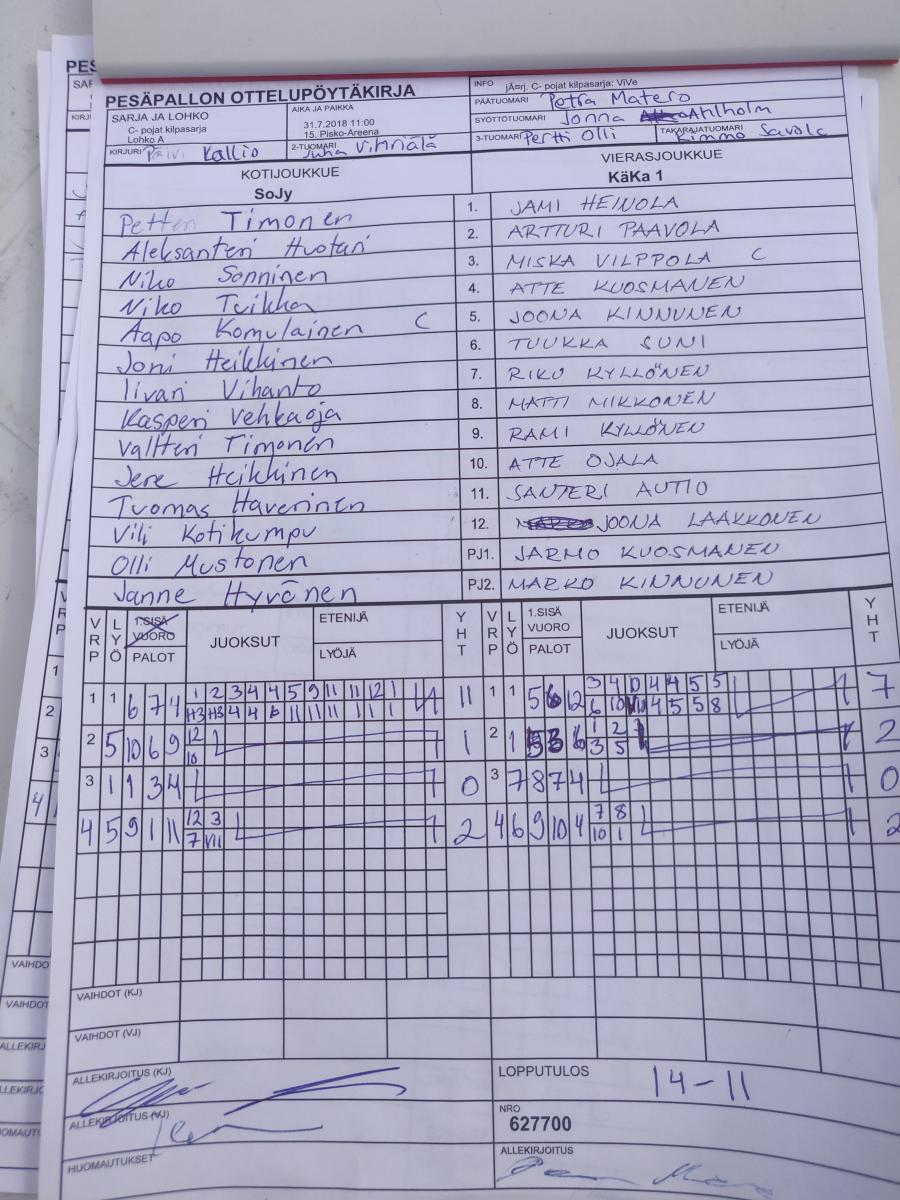 PESÄPALLON OTTELUPÖYTÄKIRJA
INFO jÃ¤rj. C- pojat kilpasarja: ViVe
SARJA JA LOHKO
C- pojat kilpasarja
Lohko A
AIKA JA PAIKKA
31.7.2018 11:00
15. Pisko-Areena
PÄÄTUOMARI Petra Matero
SYÖTTÖTUOMARI Jonna Ahlholm
KIRJURI Päivi Kallio
2-TUOMARI Juha Vihriälä
3-TUOMARI Pertti Olli
TAKARAJATUOMARI Kimmo Savola
KOTIJOUKKUE
SoJy
VIERASJOUKKUE
KäKa 1
Petteri Timonen 1. JAMI HEINOLA
Aleksanteri Huotari 2. ARTTURI PAAVOLA
Niko Sonninen 3. MISKA VILPPOLA C
Niko Tuikka 4. ATTE KUOSMANEN
Aapo Komulainen C 5. JOONA KINNUNEN
Joni Heikkinen 6. TUUKKA SUNI
Iivari Vihanto 7. RIKU KYLLÖNEN
Kasperi Vehkaoja 8. MATTI MIKKONEN
Valtteri Timonen 9. RAMI KYLLÖNEN
Jere Heikkinen 10. ATTE OJALA
Tuomas Haverinen 11. SANTERI AUTIO
Vili Kotikumpu 12. JOONA LAAKKONEN
Olli Mustonen PJ1. JARMO KUOSMANEN
Janne Hyvönen PJ2. MARKO KINNUNEN
VRP LYÖ 1.SISÄ VUORO PALOT JUOKSUT ETENIJÄ LYÖJÄ YHT VRP LYÖ 1.SISÄ VUORO PALOT JUOKSUT ETENIJÄ LYÖJÄ YHT
1 1 6 7 4 1 2 3 4 4 5 9 11 11 12 1 11 1 1 5 6 12 3 4 10 4 4 5 5 7
H3 H3 4 4 6 11 11 11 1 1 1 4 5 5 8
2 5 10 6 9 12 1 2 1 1 2 2
10 3 5
3 1 1 3 4 0 3 7 8 7 4 0
4 5 9 1 11 12 3 2 4 6 9 10 4 7 8 2
7 VII 10 1
VAIHDOT (KJ)
VAIHDOT (VJ)
ALLEKIRJOITUS (KJ)
LOPPUTULOS 14-11
ALLEKIRJOITUS (VJ)
NRO
627700
HUOMAUTUKSET
ALLEKIRJOITUS